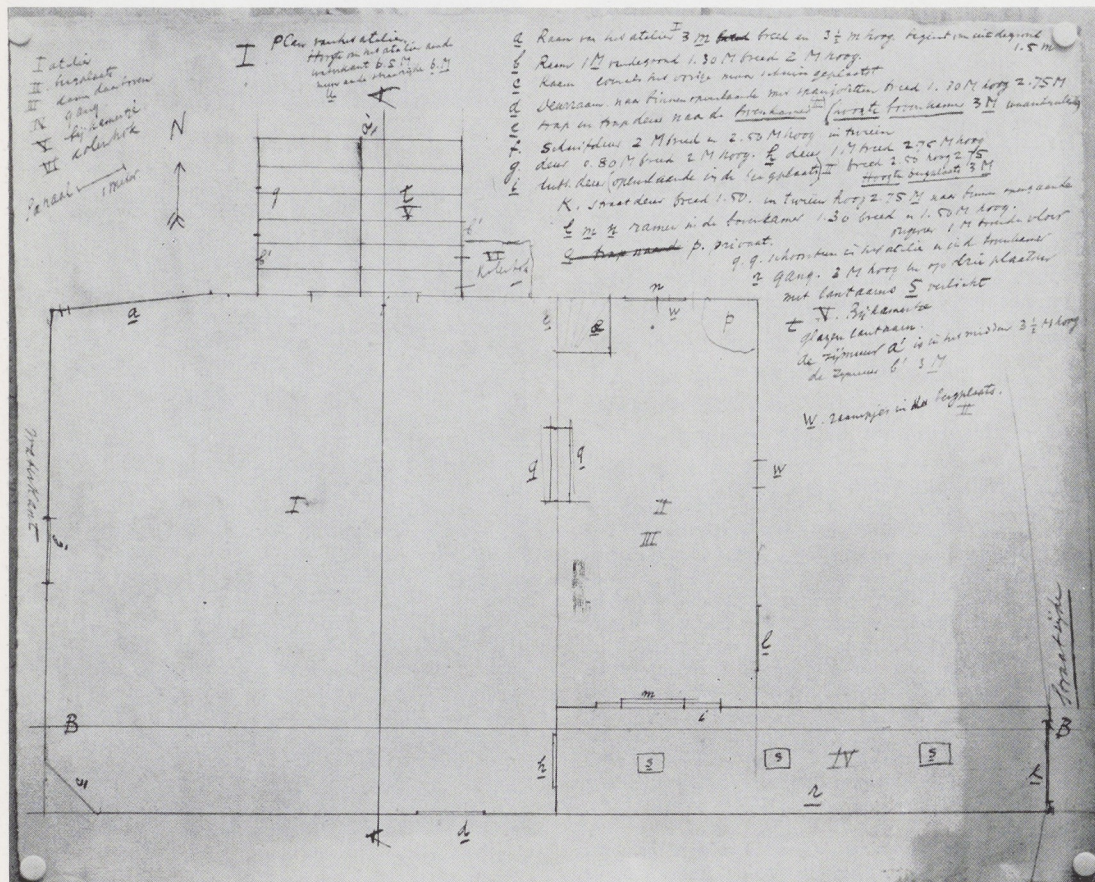 I atelier
II bergplaats
III daarboven
IV gang
V bijkamertje
VI kolenhok
1 meter
N
I Plan van het atelier
Hoogte van het atelier aan de
6.5 M
6. M
a Raam van het atelier I 3 M breed en 3½ m hoog begint van den grond
1.5 m
b Raam 1 M van de grond 1.30 M breed 2 M hoog.
c Raam evenals het vorige maar schuin geplaatst
d Deurraam naar binnen openslaande met breed 1.70 M hoog 2.75 M
e trap en trapdeur naar de bovenkamer III (hoogte bovenkamer 3 M
f. Schuifdeur 2 M breed en 2.50 M hoog in tweeën
g deur 0.80 M breed 2 M hoog. h deur 1 M breed 2.75 M hoog
i dubb. deur (openslaande in de bergplaats) II breed 2.50 hoog 2.75
Hoogte bergplaats 3 M
K. straatdeur breed 1.50. in tweeën hoog 2.75 M naar binnen
l m n ramen in de bovenkamer 1.30 breed en 1.50 M hoog.
ongeveer 1 M boven de vloer
p. privaat.
q. q. schoorsteen in het atelier en in de bovenkamer
r gang. 3 M hoog en op drie plaatsen
met lantaarns S verlicht
t V. Bijkamertje
glazen lantaarn.
de zijmuur a' is in het midden 3½ M hoog
de zijmuur b' 3 M
W. raampjes in de bergplaats.
II
A
a'
g
t
V
b'
b'
VI
Kolenhok
a
e
n
w
p
I
q
q
II
III
w
l
waterkant
Straatzijde
B
m
i
B
c
h
s
s
IV
s
K
r
d